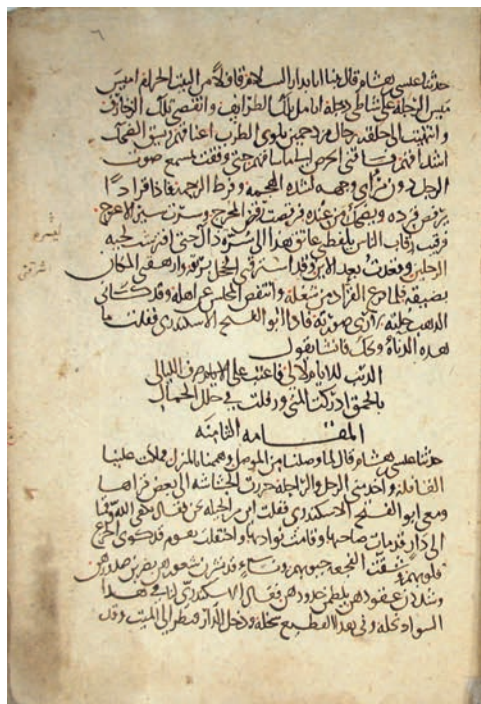 حدثنا عيسى بن هشام قال بينا انا بدار السلام قافلا من البيت الحرام اميس
ميس الرجلة على شاطى دجلة اتامل تلك الطرايف واتقصى تلك الزخارف
وانتهيت الى حلقة رجال مزدحمين يلوى الطرب اعناقهم ويشق الضحك
اشداقهم وساقنى الحرص الى ما ساقهم حتى وقفت بمسمع صوت
الرجل دون مرأى وجهه لشدة الهجمة وفرط الزحمة فاذا قراد
يرقص قرده ويضحك من عنده فرقصت رقص المحرج وسرت سير الاعرج
فوق رقاب الناس يلفظنى عاتق هذا الى سرة ذاك حتى افترشت لحية
الرجلين وقعدت بعد الاين وقد اشرقنى الخجل بريقه وارهقنى المكان
بضيقه فلما فرغ القراد من شغله وانتفض المجلس عن اهله وقد كسانى
الدهش حلته صورته فاذا ابو الفتح الاسكندرى فقلت ما
هذه الدناة ويحك فانشا يقول
الذنب للايام لا لى فاعتب على الايام صرف الليالى
بالحمق ادركت المنى ورفلت فى حلل الجمال
المقامه الثامنه
حدثنا عيسى بن هشام قال لما وصلنا من الموصل وهممنا بالمنزل وملكت علينا
القافلة واخذ منى الرحل والراحلة جررت الحشاشه الى بعض قراها
ومعى ابو الفتح الاسكندرى فقلت اين من الحيلة نحن فقال يكفى الله
الى دار قد مات صاحبها وقامت نوادبها واحتفلت بقوم قد كوى الجزع
قلوبهم وشقت الفجيعة جيوبهم ونساء قد نشرن شعورهن يضربن صدورهن
وشددن عقودهن يلطمن خدودهن فقال الاسكندرى لنا فى هذا
السواد نخلة وفى هذا القطيع سخلة ودخل الدار فنظر الى الميت وقد